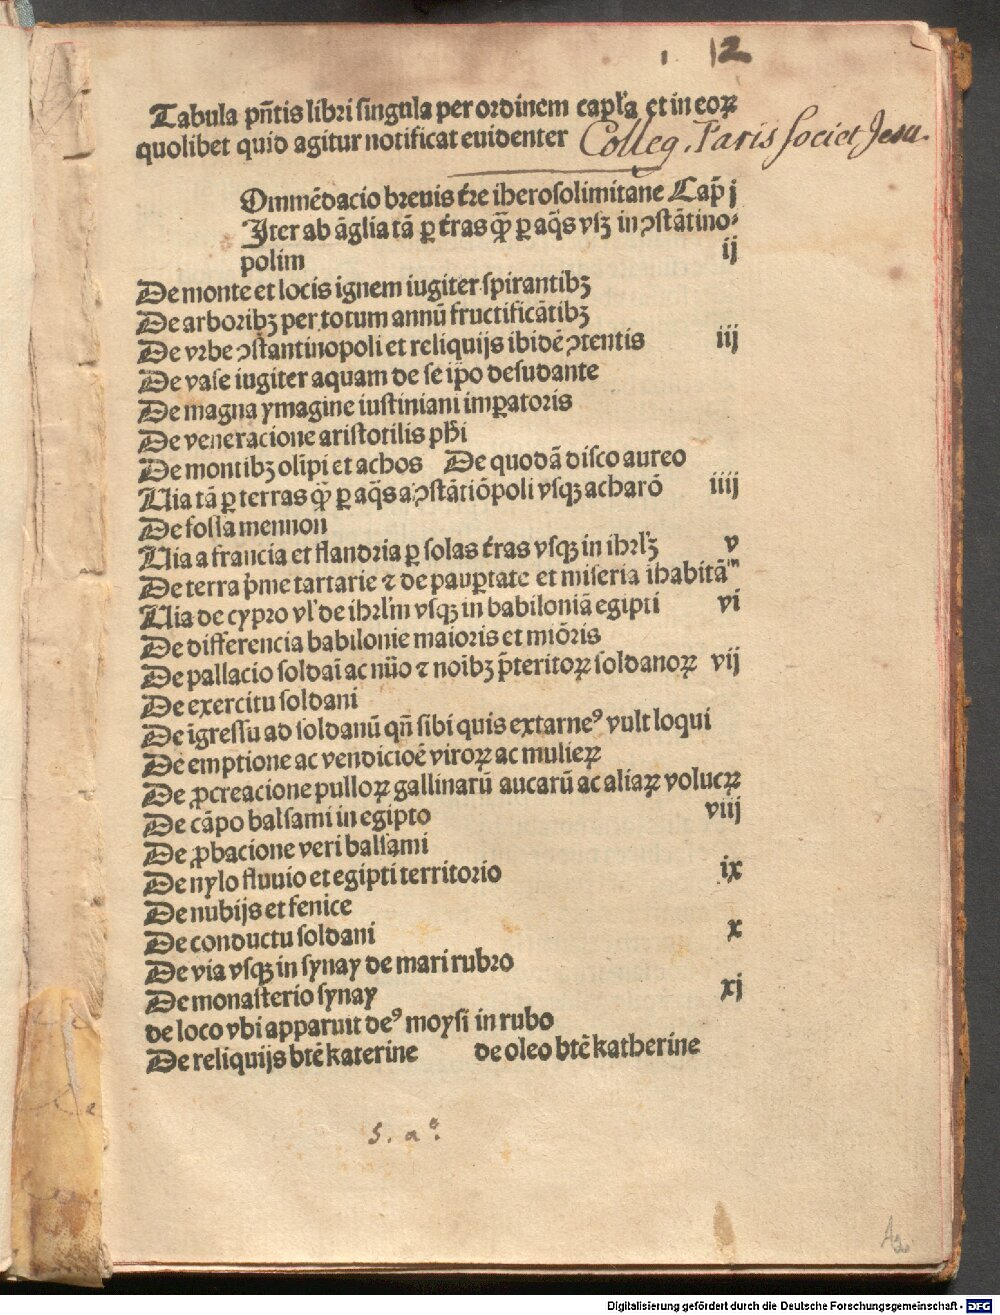 1. 12
Tabula pn̄tis libri singula per ordinem capl'a et in eoꝝ
quolibet quid agitur notificat euidenter Colleg. Paris Societ Jesu.
Ommēdacio breuis tr̄e iherosolimitane Cap̄ j
Iter ab āglia tā ꝑ tr̄as qͣ̄ ꝑ aq̄s vsqꝫ in ꝯstātino⸗
polim ij
De monte et locis ignem iugiter spirantibꝫ
De arboribꝫ per totum annū fructificātibꝫ
De vrbe ꝯstantinopoli et reliquijs ibidē ꝯtentis iij
De vase iugiter aquam de se ip̄o desudante
De magna ymagine iustiniani imꝑatoris
De veneracione aristotilis ph̄i
De montibꝫ olīpi et achos De quodā disco aureo
Uia tā ꝑ terras qͣ̄ ꝑ aq̄s a ꝯstātiōpoli vsqꝫ acharō iiij
De fossa mennon
Uia a francia et flandria ꝑ solas tr̄as vsqꝫ in ihrl'ꝫ v
De terra ꝓme tartarie ⁊ de pauꝑtate et miseria īhabitā"'
Uia de cypro vl' de ihrl'm vsqꝫ in babiloniā egipti vi
De differencia babilonie maioris et miōris
De pallacio soldai̅ ac nūo ⁊ noībꝫ p̄teritoꝝ soldanoꝝ vij
De exercitu soldani
De īgressu ad soldanū qn̄ sibi quis extarneꝰ vult loqui
De emptione ac vendicioē viroꝝ ac mulieꝝ
De ꝓcreacione pulloꝝ gallinarū aucarū ac aliaꝝ volucꝝ
De cāpo balsami in egipto viij
De ꝓbacione veri balsami
De nylo fluuio et egipti territorio ix
De nubijs et fenice
De conductu soldani x
De via vsqꝫ in synay de mari rubro
De monasterio synay xj
de loco vbi apparuit deꝰ moysi in rubo
De reliquijs btē katerine de oleo btē katherine
s. aº.
Digitalisierung gefördert durch die Deutsche Forschungsgemeinschaft - DFG